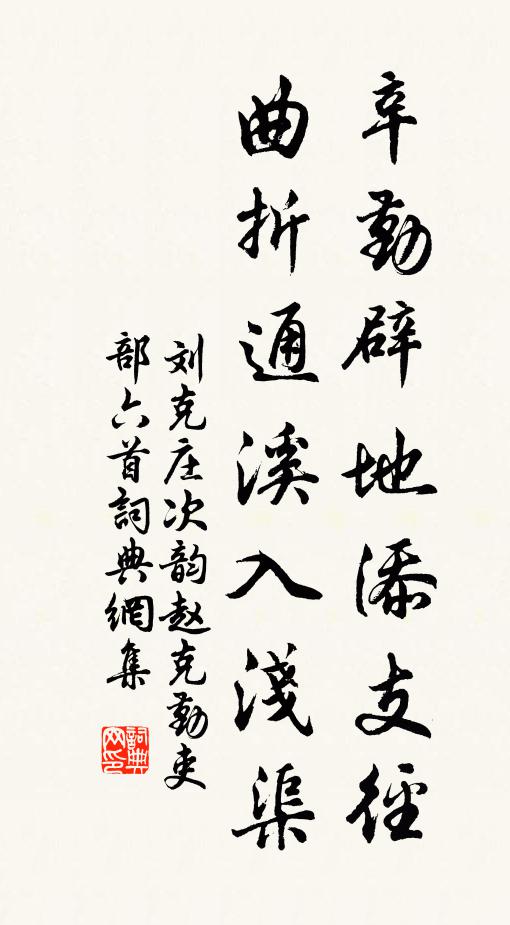 辛勤辟地添支径
曲折通溪入淺渠
刘克庄次韵赵克勤吏
部六首詞典網集
詞典
网印